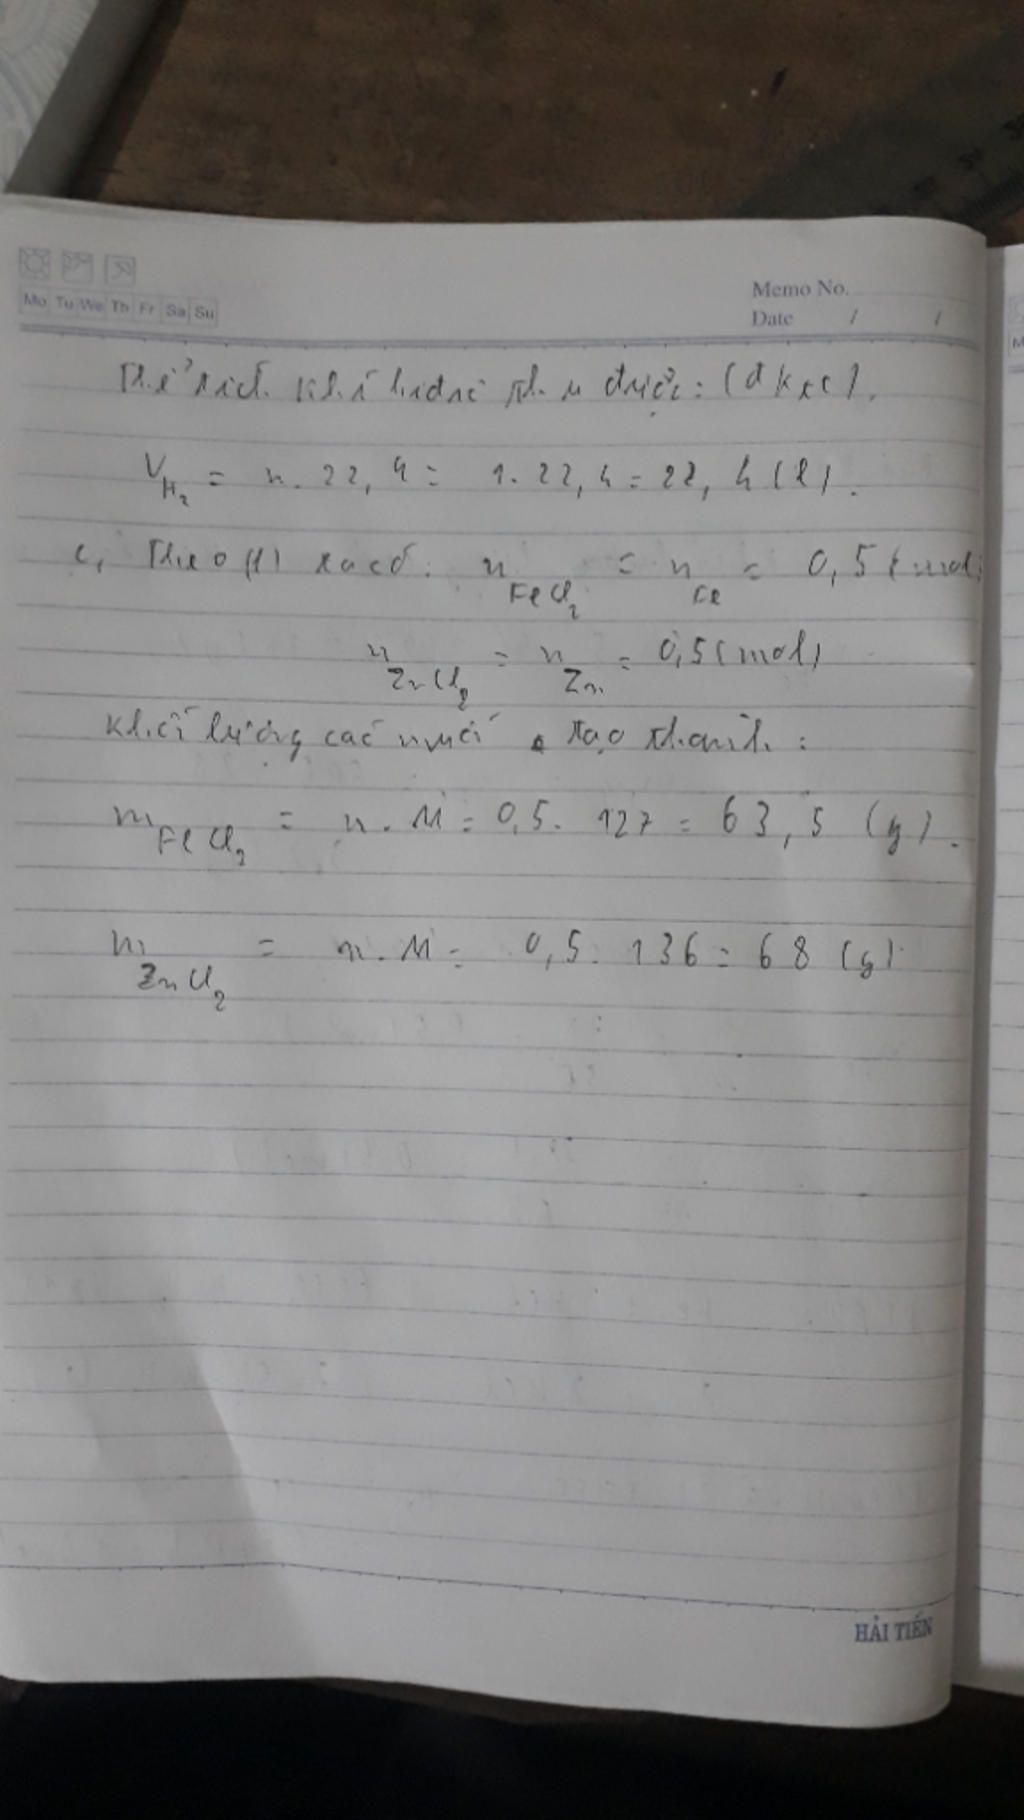 Mo Tu We Th Fr Sa Su
Memo No.
Date / /
Thể tích khí hiđrô thu được: (đktc).
V H₂ = n. 22,4 = 1. 22,4 = 22,4 (l).
c, Theo (1) ta có: n FeCl₂ = n Fe = 0,5 (mol)
n ZnCl₂ = n Zn = 0,5 (mol)
Khối lượng các muối tạo thành:
m FeCl₂ = n. M = 0,5. 127 = 63,5 (g).
m ZnCl₂ = n. M = 0,5. 136 = 68 (g)
HẢI TIẾN